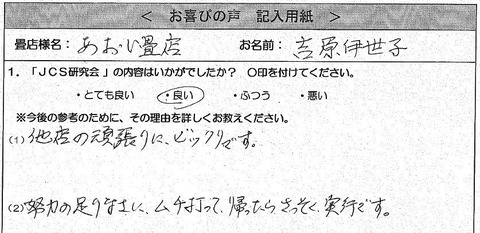 ＜ お喜びの声 記入用紙 ＞
畳店様名：あおい畳店 お名前：吉原伊世子
1．「ＪＣＳ研究会」の内容はいかがでしたか？ ○印を付けてください。
・とても良い ・良い ・ふつう ・悪い
※今後の参考のために、その理由を詳しくお教えください。
(1)他店の頑張りに、ビックリです。
(2)努力の足りなさに、ムチ打って、帰ったらさっそく、実行です。